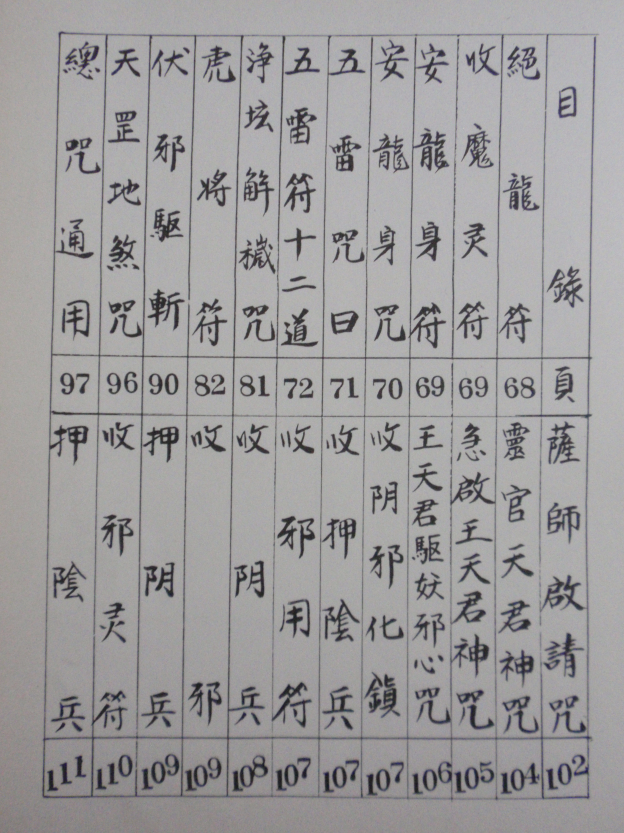 目錄 頁
絕龍符 68
收魔灵符 69
安龍身符 69
安龍身咒 70
五雷咒曰 71
五雷符十二道 72
浄坛解穢咒 81
虎将符 82
伏邪驅斬 90
天罡地煞咒 96
總咒通用 97
薩師啟請咒 102
靈官天君神咒 104
急啟王天君神咒 105
王天君驅妖邪心咒 106
收阴邪化鎮 107
收押陰兵 107
收邪用符 107
收阴兵 108
收邪 109
押阴兵 109
收邪灵符 110
押陰兵 111